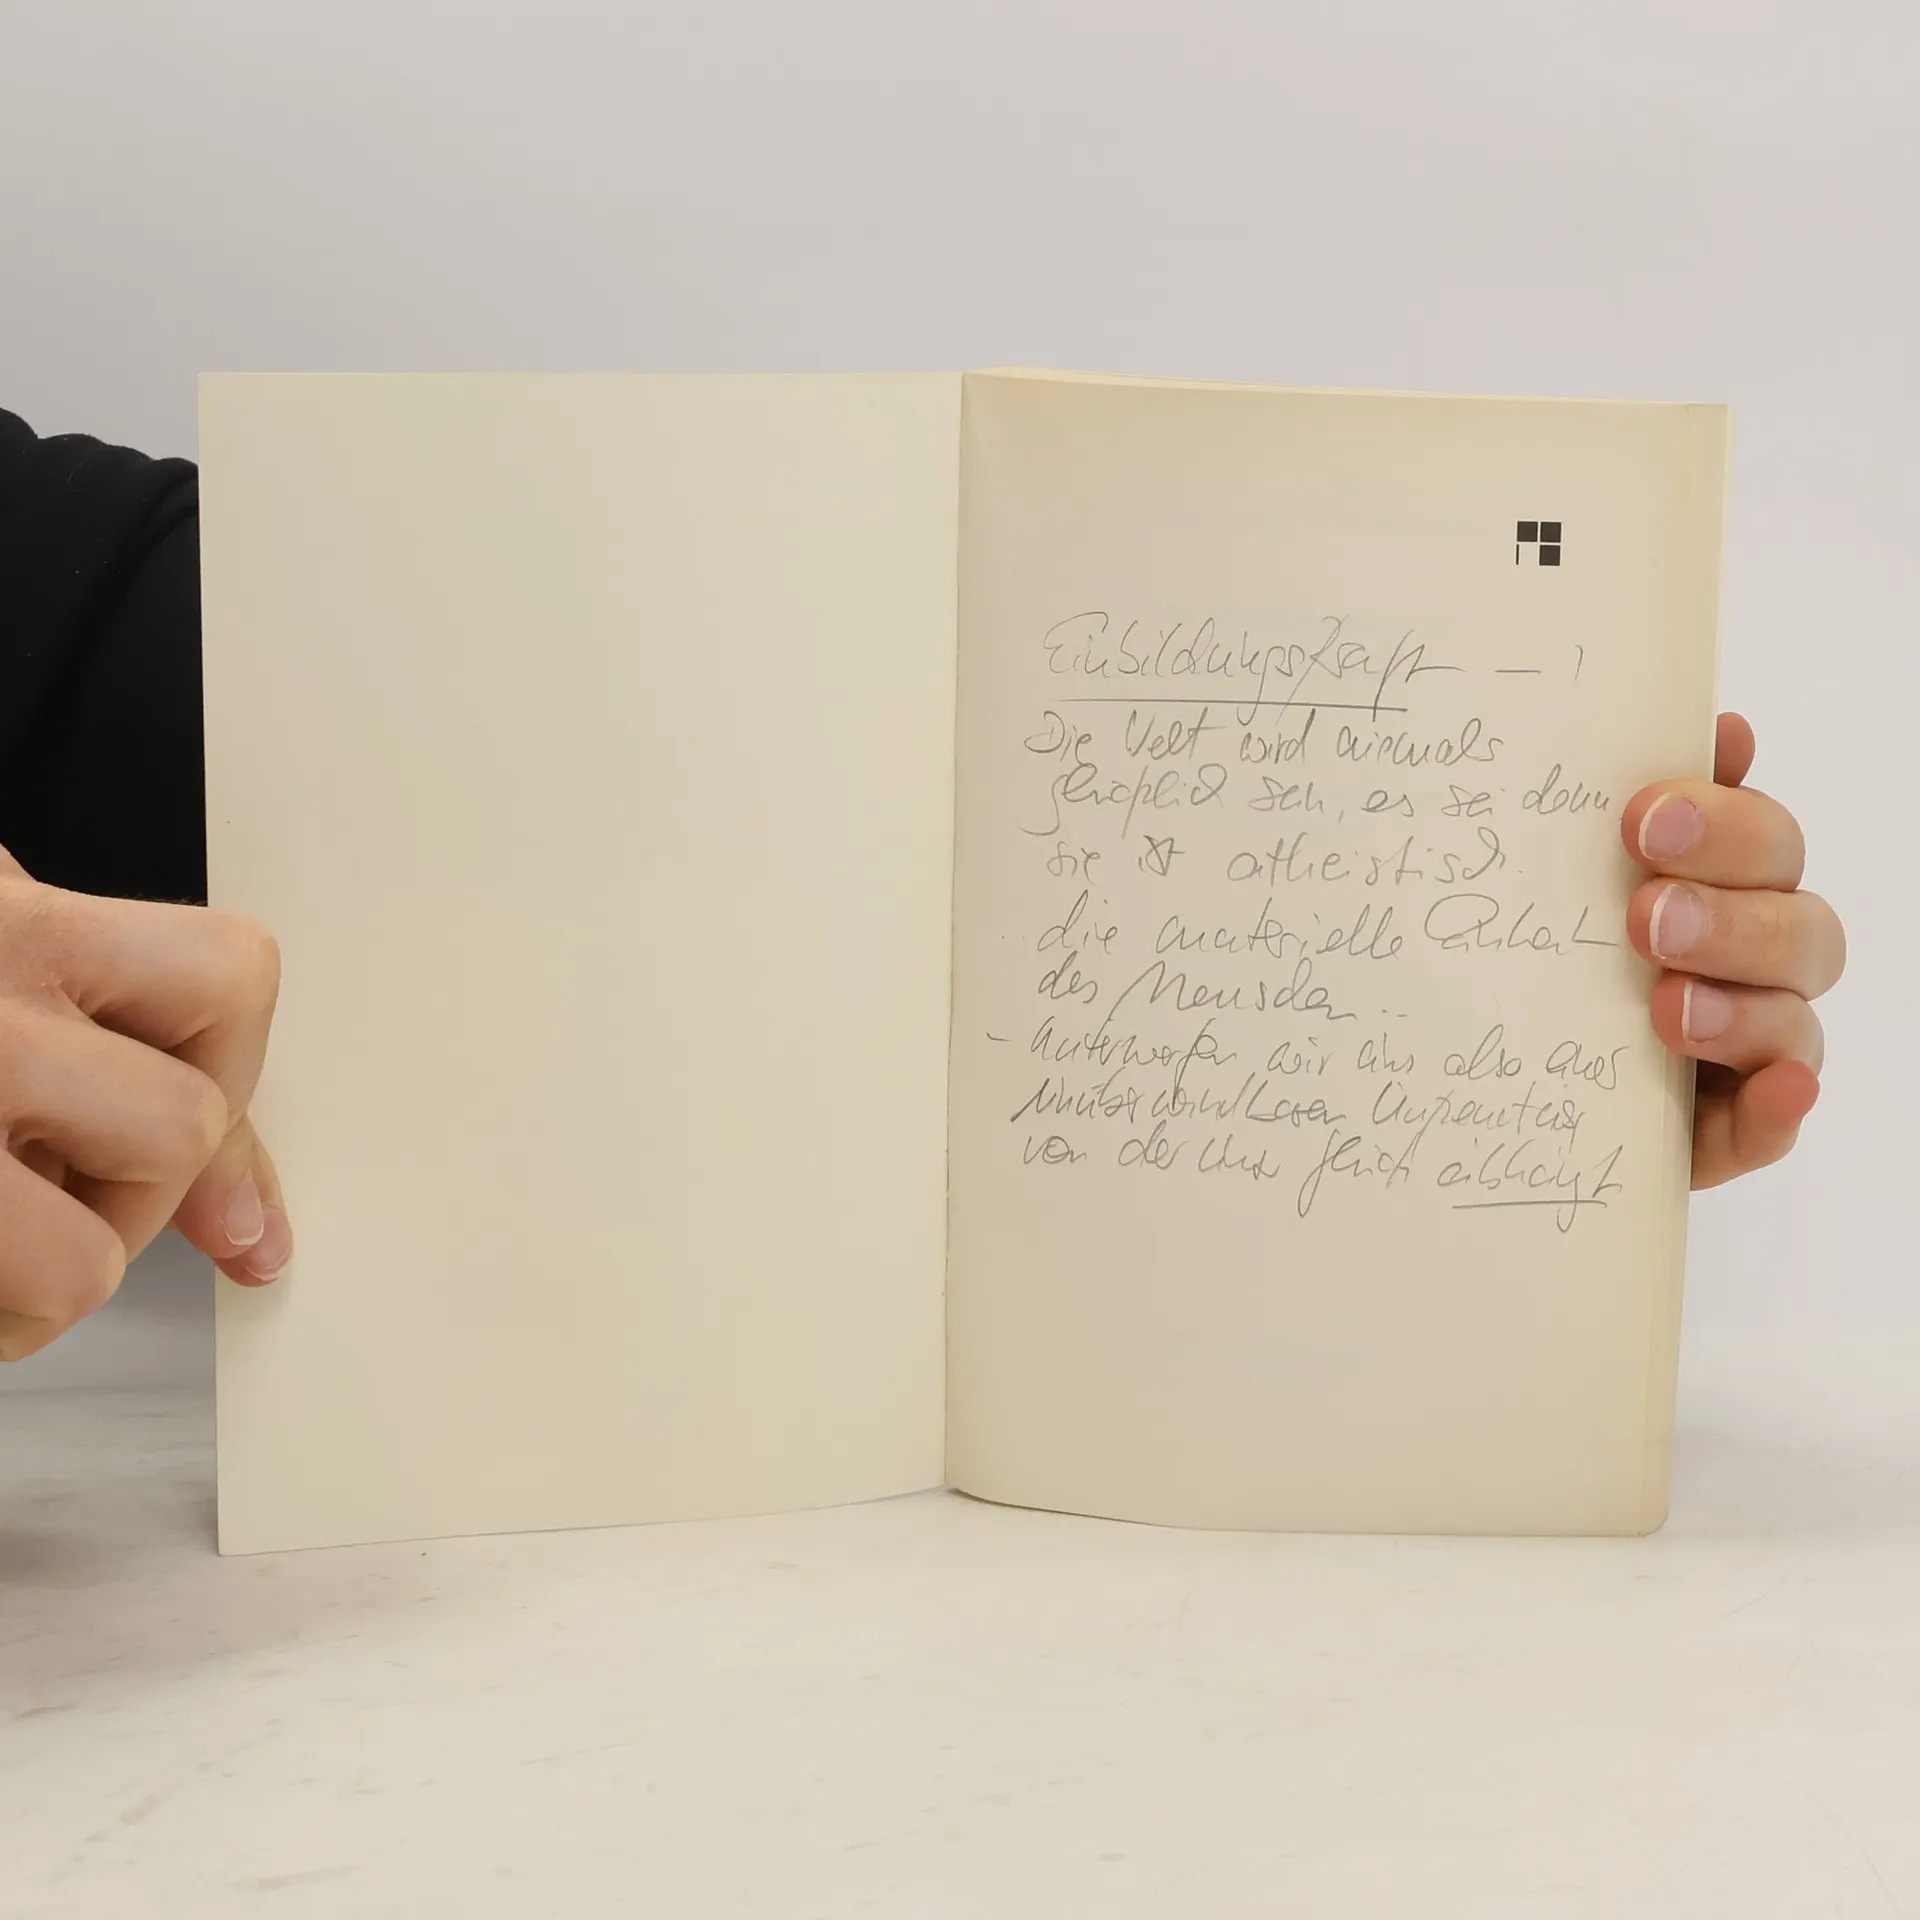 Einbildungskraft —
Die Welt wird niemals
glücklich sein, es sei denn,
sie ist atheistisch.
die materielle Einheit
des Menschen ..
- Unterwerfen wir uns also einer
unüberwindbaren
von der uns abhängt